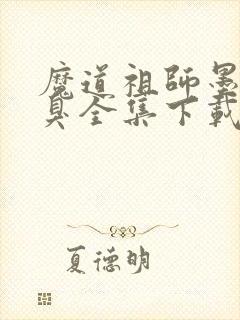 魔道祖師墨
臭全集下載
夏德明